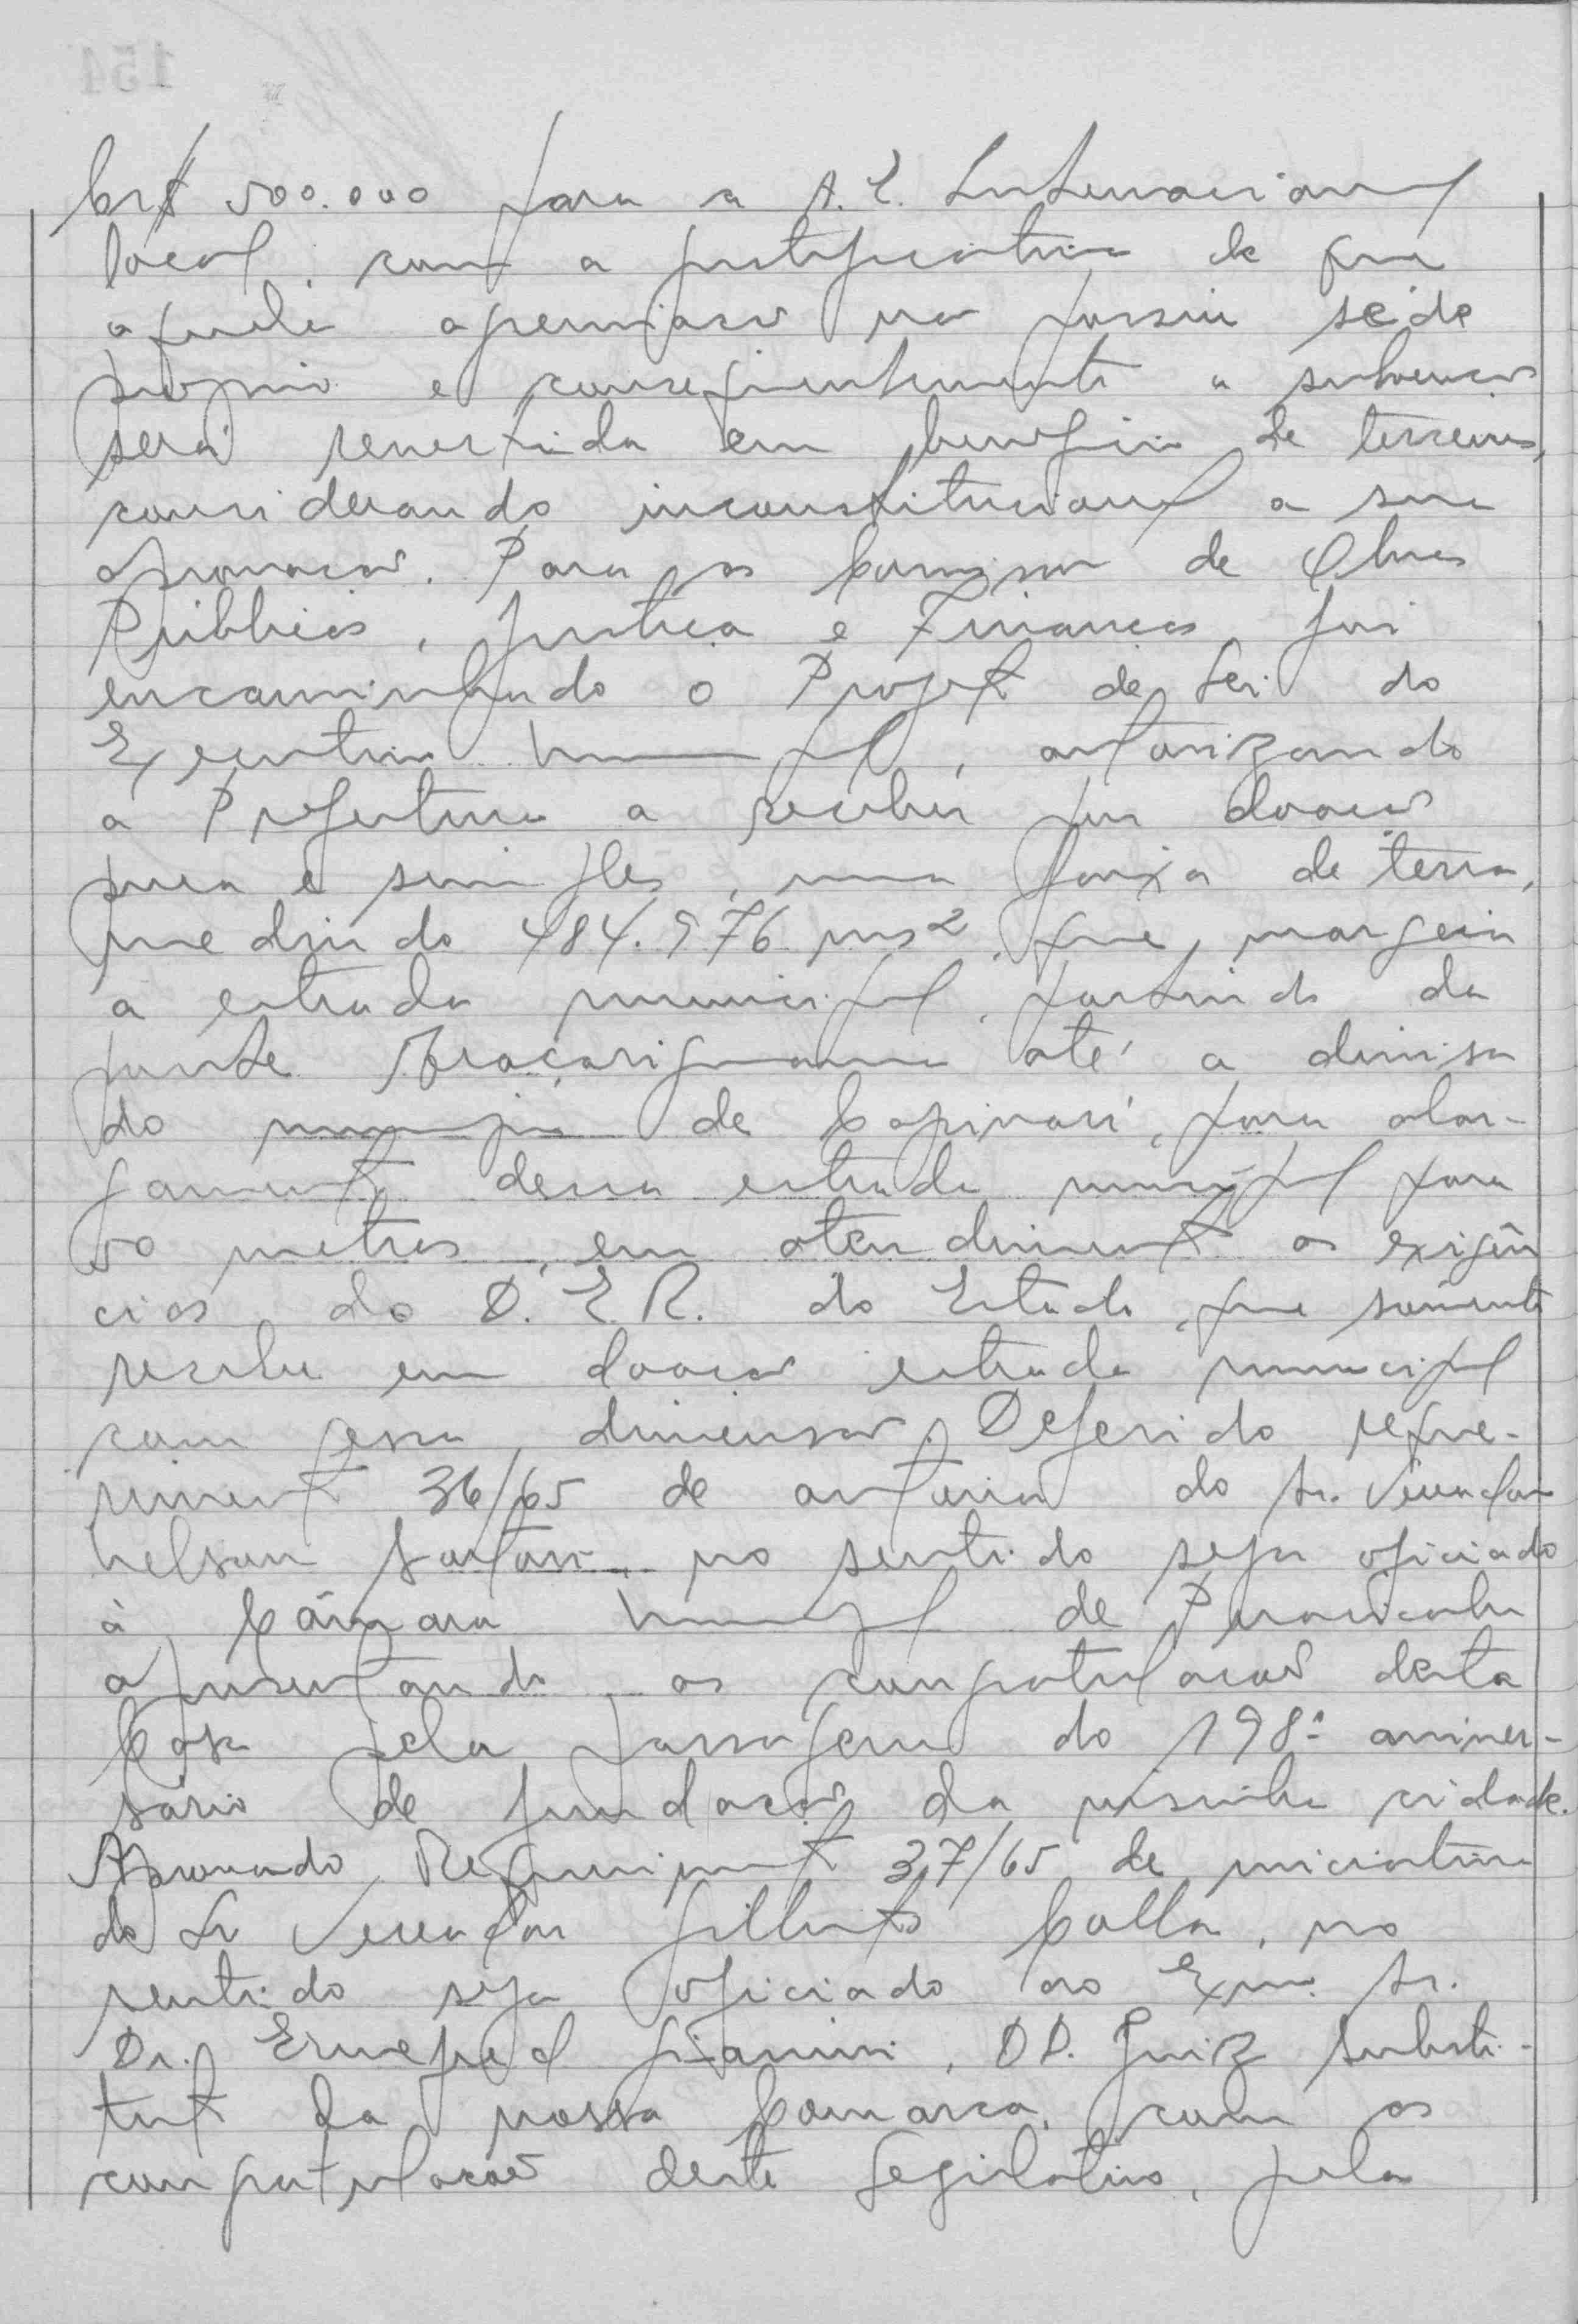 Cr$ 500.000 para a A. E. Internacional
local, com a justificativa de que
aquela agremiação não possui séde
própria e consequentemente a subvenção
será revertida em benefício de terceiros,
considerando inconstitucional a sua
aprovação. Para as Comissões de Obras
Públicas, Justiça e Finanças foi
encaminhado o Projeto de Lei do
Executivo Municipal, autorizando
a Prefeitura a receber por doação
pura e simples, uma faixa de terra,
medindo 484.976 ms2, que margeia
a estrada municipal, partindo da
ponte Araçariguama até a divisa
do município de Capivari, para alar-
gamento dessa estrada municipal para
50 metros, em atendimento as exigên
cias do D. E. R. do Estado, que sómente
recebe em doação estrada municipal
com essa dimensão. Deferido reque-
rimento 36/65 de autoria do Sr. Vereador
Nelson no sentido seja oficiado
à Câmara Municipal de Piracicaba
apresentando as congratulações desta
Casa pela passagem do 198º aniver-
sário de fundação da visinha cidade.
Aprovado Requerimento 37/65 de iniciativa
do Sr Vereador Gilberto Calla, no
sentido seja oficiado ao Exmo. Sr.
Dr. Gianini, DD. Juiz Substi-
tuto da nossa Comarca, com as
congratulações deste Legislativo, pela